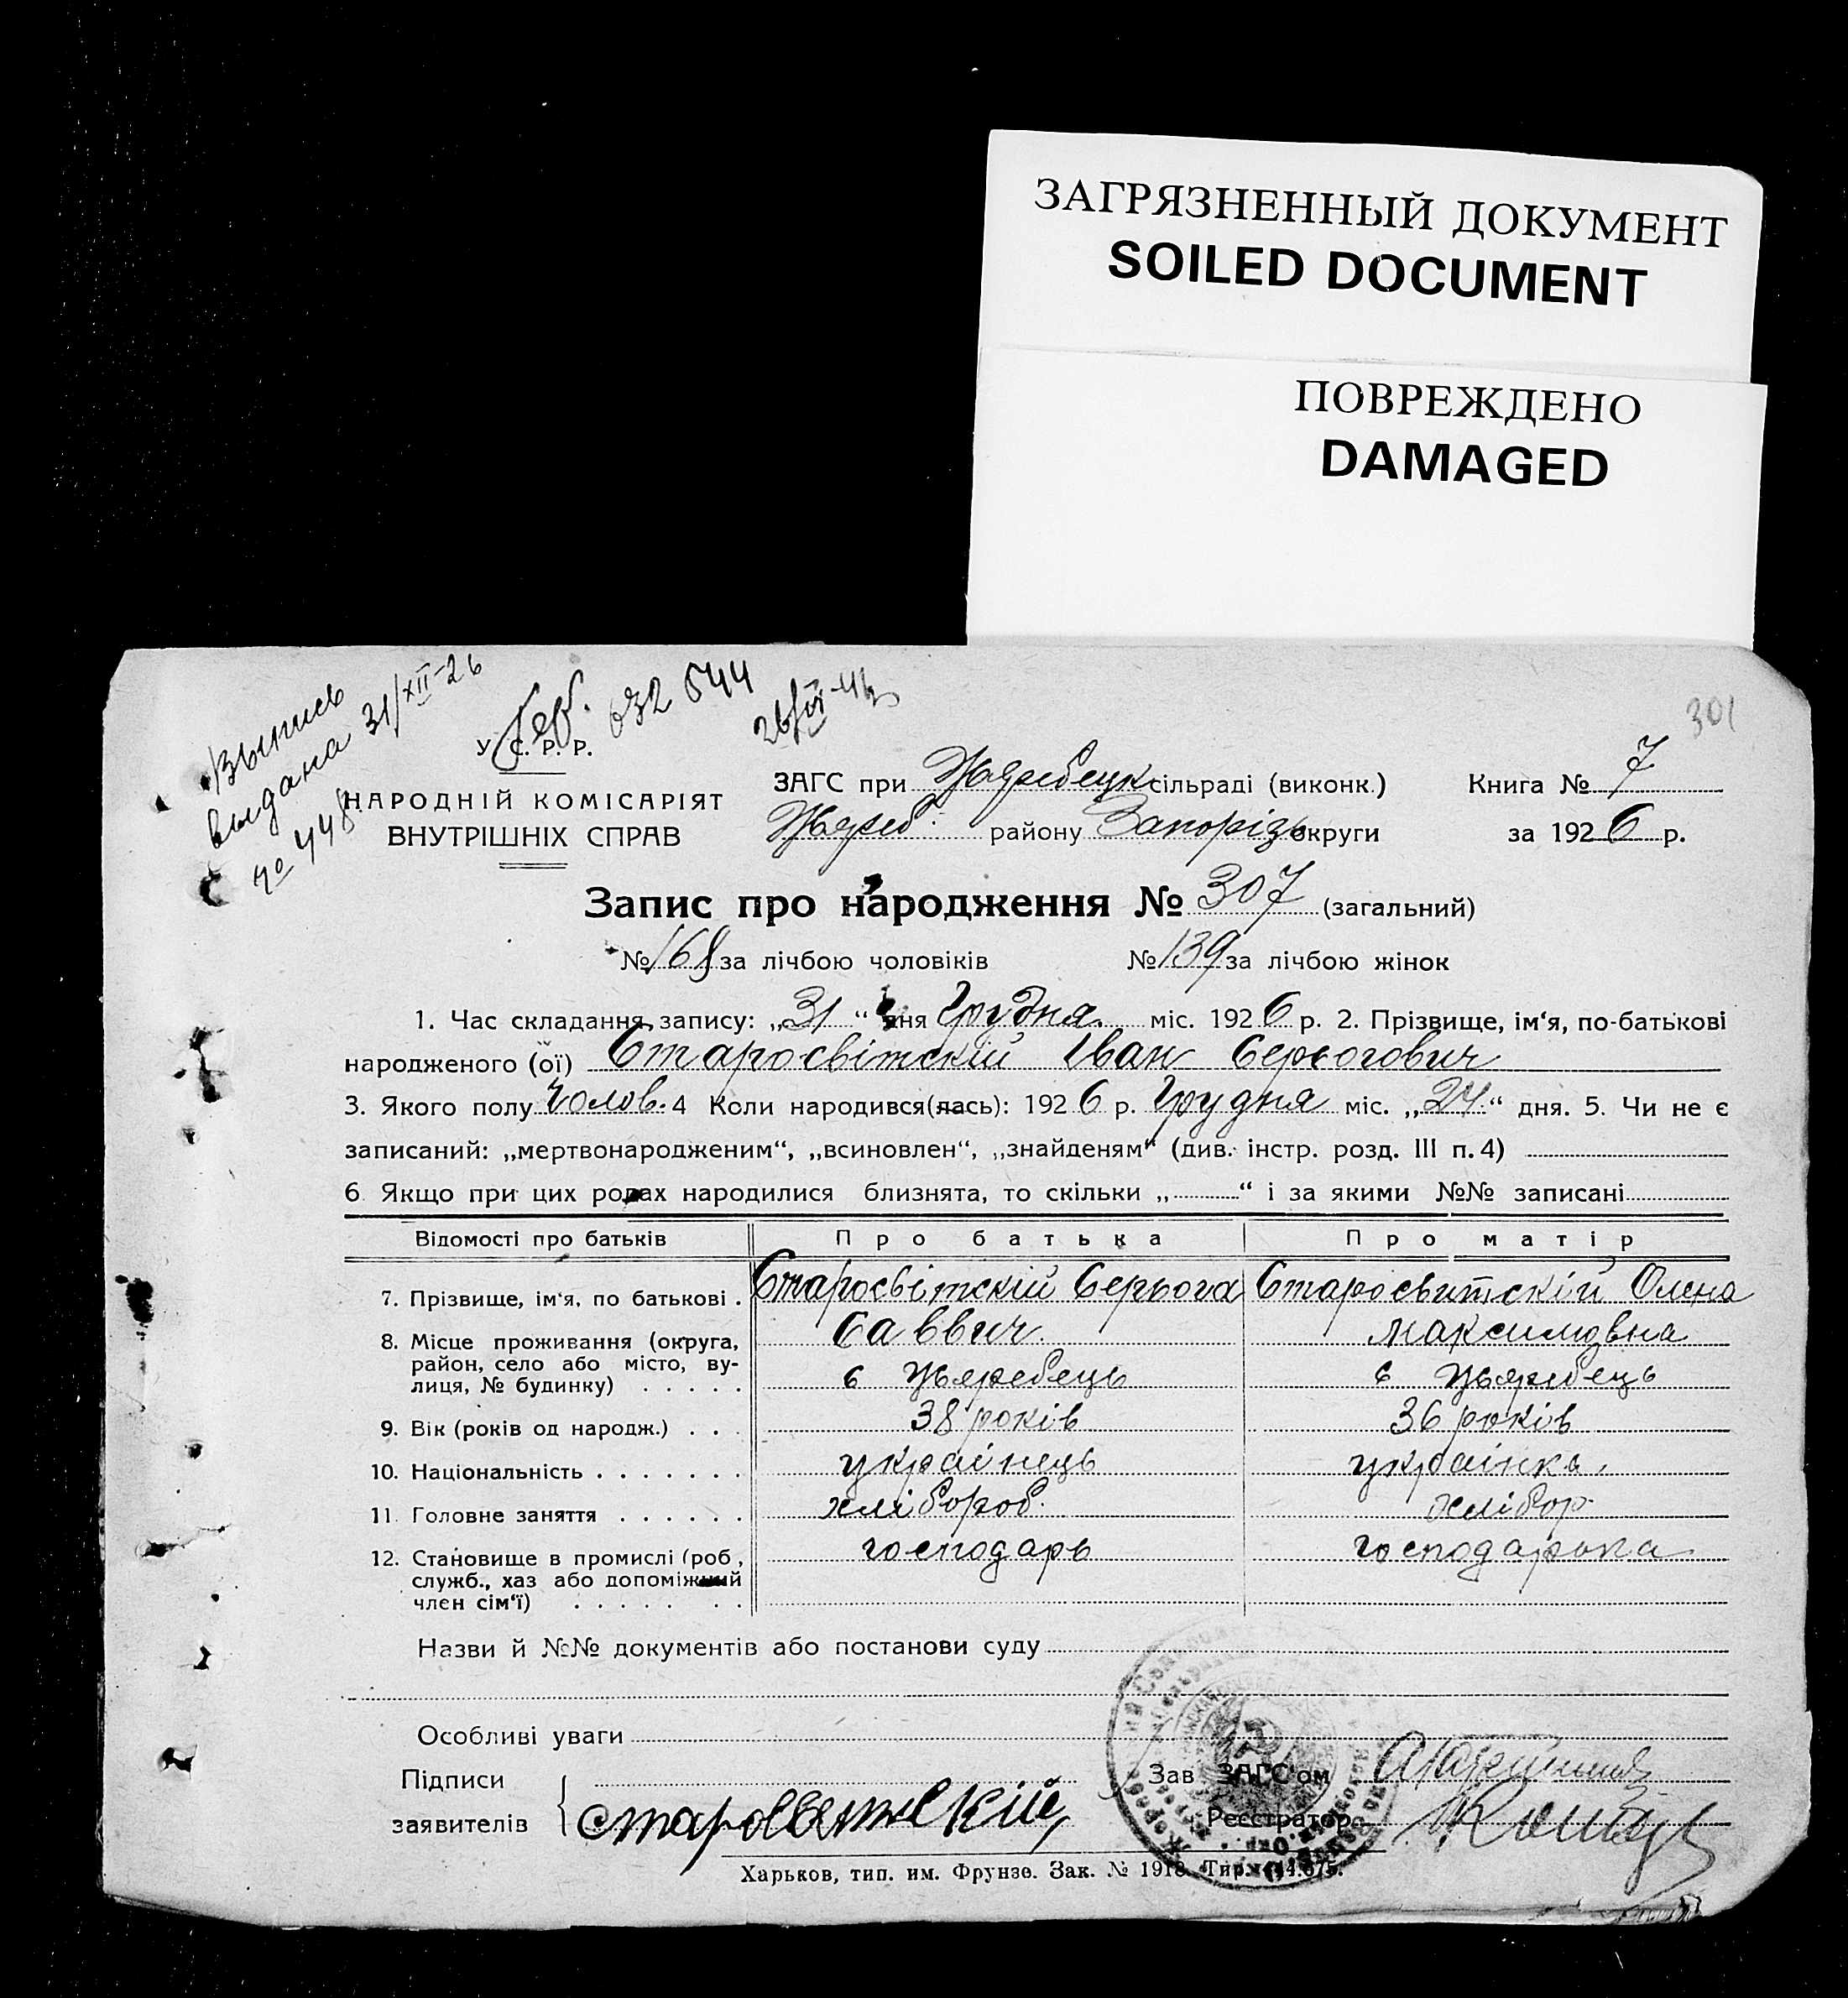 ЗАГРЯЗНЕННЫЙ ДОКУМЕНТ
SOILED DOCUMENT
ПОВРЕЖДЕНО
DAMAGED
301
Выпись
выдана 31/XII-26
№ 448
032 544
У. С. Р. Р.
НАРОДНІЙ КОМІСАРІЯТ
ВНУТРІШНІХ СПРАВ
ЗАГС при Жеребецк сільраді (виконк.) Книга № 7
Жереб. району Запорізь округи за 1926 р.
Запис про народження № 307 (загальний)
№ 168 за лічбою чоловіків № 139 за лічбою жінок
1. Час складання запису: „31“ дня Грудня міс. 1926 р. 2. Прізвище, ім‘я, по-батькові
народженого (ої) Старосвітскій Іван Серьогович
3. Якого полу Чолов. 4 Коли народився(лась): 1926 р. Грудня міс. „24“ дня. 5. Чи не є
записаний: „мертвонародженим“, „всиновлен“, „знайденям“ (див. інстр. розд. III п. 4)
6 Якщо при цих родах народилися близнята, то скільки „ “ і за якими №№ записані
Відомості про батьків Про батька Про матір
7. Прізвище, ім‘я, по батькові . Старосвітскій Серьога Старосвитскій Олена
Саввич Максимовна
8. Місце проживання (округа,
район, село або місто, ву-
лиця, № будинку) . . . . . с Жеребець с Жеребець
9. Вік (років од народж.) . . . 38 років 36 років
10. Національність . . . . . . . українець українка
11. Головне заняття . . . . . . хлібороб. хлібор.
12. Становище в промислі (роб., господарь господарька
служб., хаз або допоміжний
член сім‘ї) . . . . . . .
Назви й №№ документів або постанови суду
Особливі уваги
Підписи
заявителів
Старосветский
Зав ЗАГС‘ом
Реєстратор
Харьков, тип. им. Фрунзе. Зак. № 1918. Тир. 44.675.